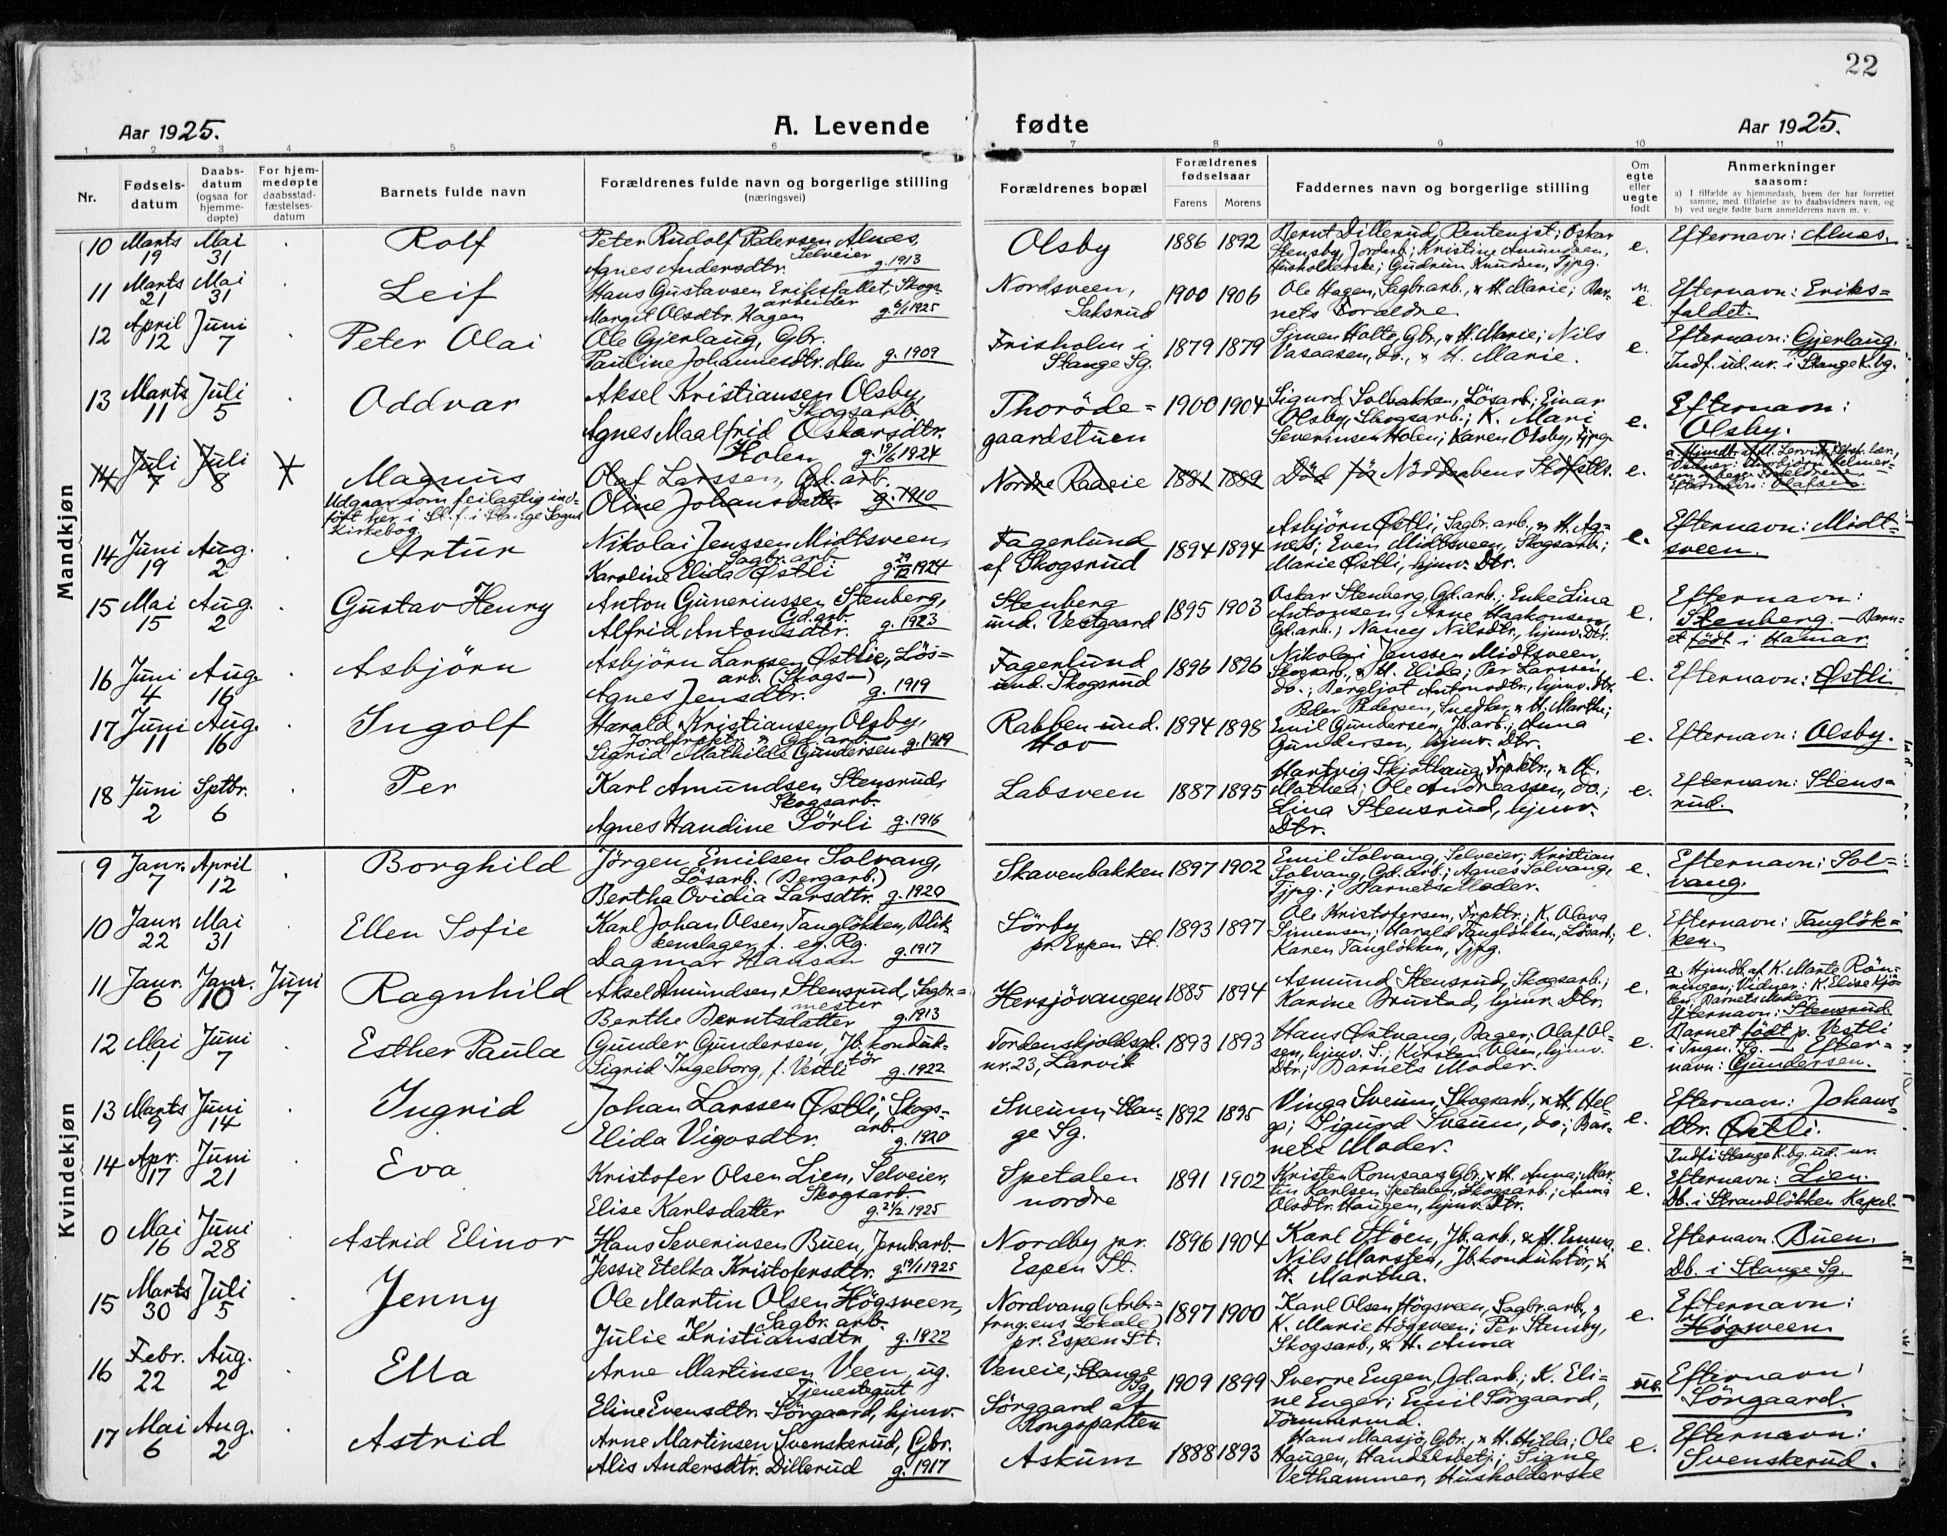 22
Aar 1925.
A. Levende fødte
Aar 1925.
1 2 3 4 5 6 7 8 9 10 11
Nr.
Fødsels-
datum
Daabs-
datum
(ogsaa for
hjemme-
døpte)
For hjem-
medøpte
daabsstad-
fæstelses-
datum
Barnets fulde navn
Forældrenes fulde navn og borgerlige stilling
(næringsvei)
Forældrenes bopæl
Forældrenes
fødselsaar
Farens Morens
Faddernes navn og borgerlige stilling
Om
egte
eller
uegte
født
Anmerkninger
saasom:
a) I tilfælde av hjemmedaab, hvem der har forrettet
samme, med tilføielse av to daabsvidners navn, og
b) ved uegte fødte barn anmelderens navn m. v.
Mandkjøn
10 Marts 19 Mai 31 Rolf
Peter Rudolf Pedersen Alnæs,
Selveier
Agnes Andersdtr. g. 1913
Olsby 1886 1892
Bernt Dillerud, Rentenist; Oskar
Stensby, Jordarb.; Kristine Amundsen,
Husholderske; Gudrun Knudsen, Tjpg.
e. Efternavn: Alnæs.
11 Marts 21 Mai 31 Leif
Hans Gustavsen Eriksfallet, Skogs-
arbeider
Margit Olsdtr. Hagen g. 6/1 1925
Nordsveen,
Saksrud
1900 1906
Ole Hagen, Sagbr.arb., & H. Marie; Bar-
nets Forældre
e. Efternavn: Eriks-
faldet.
12 April 12 Juni 7 Peter Olai
Ole Gjerlaug, Gbr.
Pauline Johannesdtr. Alm g. 1909
Frisholm i
Stange Sg.
1879 1879
Simen Holte, Gbr., & H. Marie; Nils
Vasaasen, do., & H. Marie.
e. Efternavn: Gjerlaug.
Indf. ud. nr. i Stange K.bg.
13 Marts 11 Juli 5 Oddvar
Aksel Kristiansen Olsby,
Skogsarb.
Agnes Maalfrid Oskarsdtr.
Holen g. 19/6 1924
Thoröde-
gaardstuen
1900 1904
Sigurd Solbakken, Lösarb.; Einar
Olsby, Skogsarb.; K. Mari
Severinsen Holen; Karen Olsby, tjpg.
e. Efternavn:
Olsby.
14 Juli 7 Juli 8 Magnus
Udgaar som feilagtig ind-
ført her i St. f. i Stange Sogns
Kirkebog
Olaf Larssen, Gd.arb.
Oline Johansdatter g. 1910
Nordre Raaeie 1881 1889
Död før Nöddaabens Stadfæstelse
e.
14 Juni 19 Aug. 2 Artur
Nikolai Jenssen Midtsveen,
Sagbr.arb.
Karoline Elida Østli g. 29/12 1924
Fagerlund
af Skogsrud
1894 1894
Asbjörn Østli, Sagbr.arb., & H. Ag-
nes; Even Midtsveen, Skogsarb.;
Marie Østli, hjmv. Dtr.
e. Efternavn: Midt-
sveen.
15 Mai 15 Aug. 2 Gustav Henry
Anton Guneriussen Stenberg,
Gd.arb.
Alfrid Antonsdtr. g. 1923
Stenberg
und. Vestgaard
1895 1903
Oskar Stenberg, Gd.arb.; Enke Lina
Antonsen; Arne Haakonsen,
Gd.arb.; Nancy Nilsdtr., hjmv. Dtr.
e. Efternavn:
Stenberg. - Barn-
et født i Hamar.
16 Juni 4 Aug. 16 Asbjörn
Asbjörn Larssen Østlie, Lös-
arb. (Skogs-)
Agnes Jensdtr. g. 1919
Fagerlund
und. Skogsrud
1896 1896
Nikolai Jenssen Midtsveen,
Skogarb., & H. Elida; Per Larssen,
do.; Bergljot Antonsdtr., hjmv. Dtr.
e. Efternavn: Østli
17 Juni 11 Aug. 16 Ingolf
Harald Kristiansen Olsby,
Jordfrpktr. & Gd.arb.
Sigrid Mathilde Gundersen g. 1919
Rabben und.
Hov
1894 1898
Peder Pedersen, Snedker, & H. Marthe;
Emil Gundersen, Jb.arb.; Anna
Gundersen, hjmv. Dtr.
e. Efternavn: Olsby.
18 Juni 2 Sptbr. 6 Per
Karl Amundsen Stensrud,
Skogsarb.
Agnes Handine Sörli g. 1916
Labsveen 1887 1895
Hartvig Skjøtlaug, Frpktr., & H.
Mathea; Ole Andreassen, do.;
Lina Stensrud, hjmv.
Dtr.
e. Efternavn: Stens-
rud.
Kvindekjøn
9 Janr. 7 April 12 Borghild
Jörgen Emilsen Solvang,
Lösarb. (Bergarb.)
Bertha Ovidia Larsdtr. g. 1920
Skavenbakken 1897 1902
Emil Solvang, Selveier; Kristian
Solvang, Gd.arb.; Agnes Solvang,
Tjpg.; Barnets Moder.
e. Efternavn: Sol-
vang.
10 Janr. 22 Mai 31 Ellen Sofie
Karl Johan Olsen Tangløkken, Blik-
kenslager f. eg. Rg.
Dagmar Hansen g. 1917
Sörby
pr. Espen St.
1893 1897
Ole Kristofersen, Frpktr.; K. Olava
Simensen; Harald Tangløkken, Lösarb.;
Karen Tangløkken, Tjpg.
e. Efternavn: Tangløk-
ken.
11 Janr. 6 Janr. 10 Juni 7 Ragnhild
Aksel Amundsen Stensrud, Sagbr.-
mester
Berthe Berntsdatter g. 1913
Hersjövangen 1885 1894
Asmund Stensrud, Skogsarb.;
Karine Brustad, hjmv. Dtr.
e. a. Hjmdb. af K. Marte Rön-
ningen; Vidner: K. Elise Kjö-
len, Barnets Moder.
Efternavn: Stensrud
12 Mai 1 Juni 7 Esther Paula
Gunder Gundersen, Jb.konduk-
tör
Sigrid Ingeborg, f. Vestli g. 1922
Tordenskjoldsgd.
nr. 23, Larvik
1893 1893
Hans Østvang, Bager; Olaf Ol-
sen, hjmv. S.; Kirsten Olsen, hjmv.
Dtr.; Barnets Moder.
e. Barnet født p. Vestli
i Tngn. Sg. - Efter-
navn: Gundersen.
13 Marts 9 Juni 14 Ingrid
Johan Larssen Østli, Skogs-
arb.
Elida Vigosdtr. g. 1920
Sveum, Stan-
ge Sg.
1892 1895
Vinga Sveum, Skogsarb., & H. Hel-
ga; Sigurd Sveum, do.; Bar-
nets Moder.
e. Efternavn: Johans-
dtr. Østli.
Indf. i Stange K.bg. ud. nr.
14 Apr. 17 Juni 21 Eva
Kristofer Olsen Lien, Selveier,
Skogsarb.
Elise Karlsdatter g. 21/2 1925
Spetalen
nordre
1891 1902
Kristen Romsaas, Gbr., & H. Anna; Mar-
tin Karlsen Spetalen, Skogsarb.; Anna
Olsdtr. Haugen, hjmv. Dtr.
e. Efternavn: Lien.
Db. i Strandløkken Kapel.
0 Mai 16 Juni 28 Astrid Elinor
Hans Severinsen Buen, Jernbarb.
Jessie Etelka Kristofersdtr. g. 19/1 1925
Nordby pr.
Espen St.
1896 1904
Karl Støen, Jb.arb., & H. Emma,
Nils Marsten, Jb.konduktör, &
H. Martha.
e. Efternavn: Buen.
Db. i Stange Sg.
15 Marts 30 Juli 5 Jenny
Ole Martin Olsen Högsveen,
Sagbr.arb.
Julie Kristiansdtr. g. 1922
Nordvang (Arb.-
frug.ens Lokale)
pr. Espen St.
1897 1900
Karl Olsen Högsveen, Sagbr.arb., &
K. Marie Högsveen; Per Stensby,
Skogsarb., & H. Anna
e. Efternavn:
Högsveen
16 Febr. 22 Aug. 2 Ella
Arne Martinsen Veen, ug.
Tjenestegut
Eline Evensdtr. Sörgaard, hjmv.
Veneie, Stange
Sg.
Sörgaard af
Kongsparten
1909 1899
Sverre Eugen, Gd.arb.; K. Eli-
ne Enger; Emil Sörgaard,
Tömmermd.
Efternavn:
Sörgaard.
17 Mai 6 Aug. 2 Astrid
Arne Martinsen Svenskerud, Gbr.
Alis Andersdtr. Dillerud g. 1917
Askum 1888 1893
Hans Maasjø, Gbr., & H. Hilda; Ole
Haugen, Handelsbetj.; Signe
Vethammer, Husholderske
e. Efternavn:
Svenskerud.